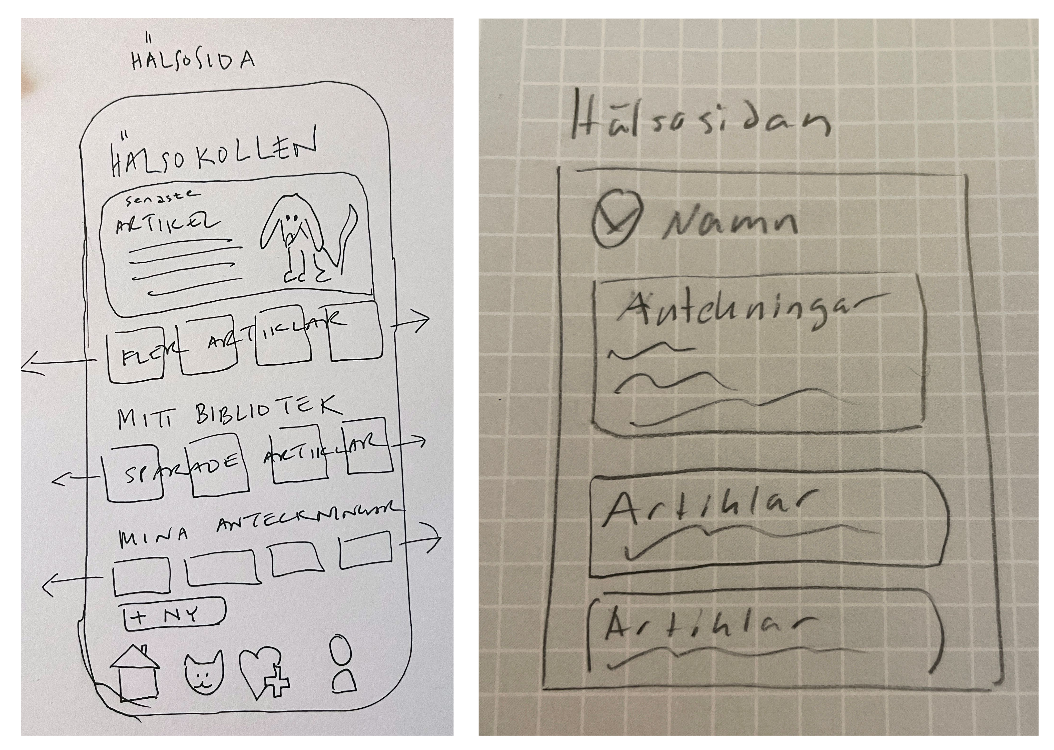 HÄLSOSIDA
HÄLSOKOLLEN
senaste
ARTIKEL
FLER ARTIKLAR
MITT BIBLIOTEK
SPARADE ARTIKLAR
MINA ANTECKNINGAR
+ NY
Hälsosidan
Namn
Anteckningar
Artiklar
Artiklar